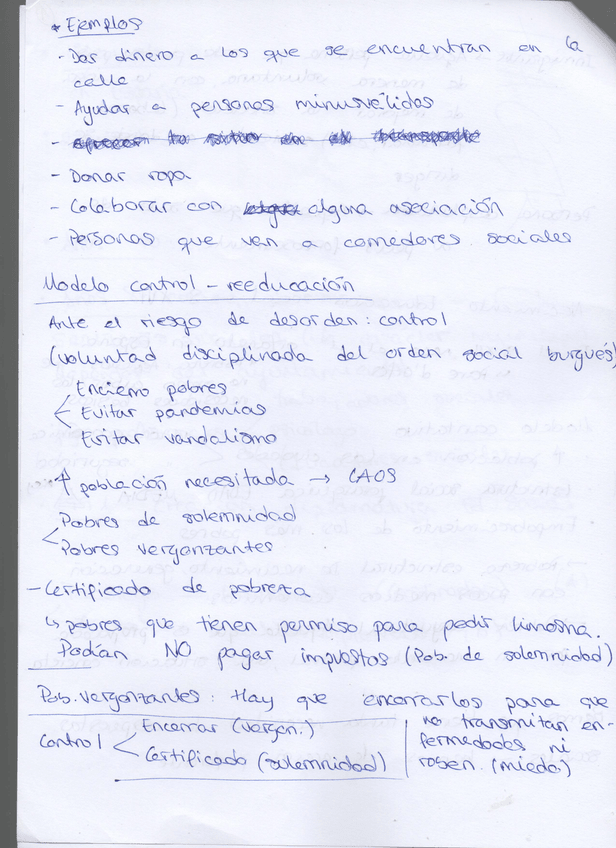 * Ejemplos
- Dar dinero a los que se encuentran en la
calle
- Ayudar a personas minusválidas
-
- Donar ropa
- Colaborar con alguna asociación
- Personas que van a comedores sociales
Modelo control - reeducación
Ante el riesgo de desorden: control
(voluntad disciplinada del orden social burgués)
Encierro pobres
Evitar pandemias
Evitar vandalismo
↑ población necesitada → CAOS
Pobres de solemnidad
Pobres vergonzantes
- Certificado de pobreza
↳ pobres que tienen permiso para pedir limosna.
Podían NO pagar impuestos (Pob. de solemnidad)
Pob. vergonzantes: Hay que encerrarlos para que
no transmitan en-
fermedades ni
roben. (miedo)
Control < Encerrar (vergon.)
Certificado (solemnidad)